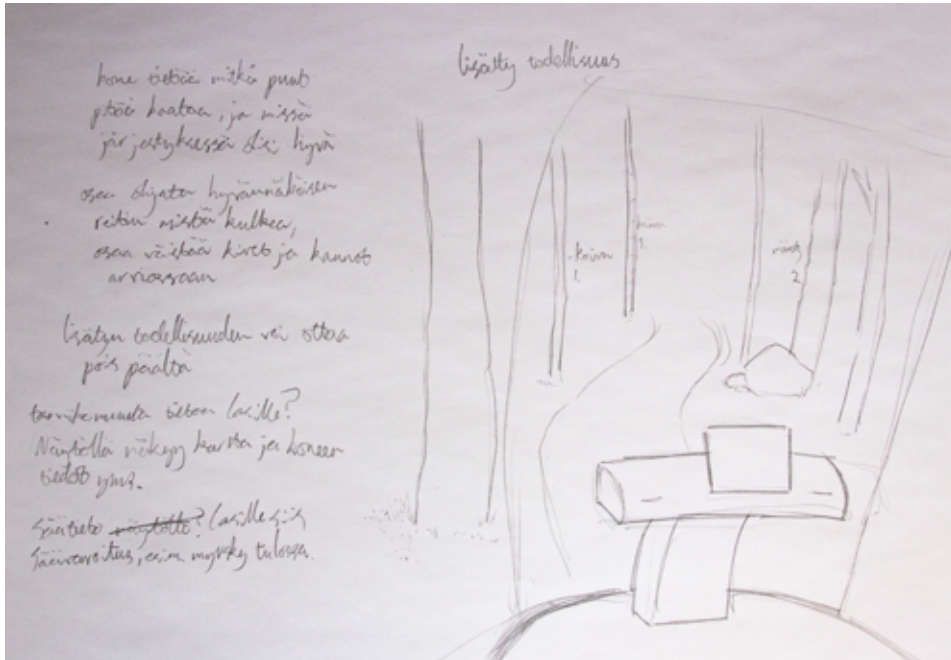 lisätty todellisuus
kone tietää mitkä puut
pitää kaataa, ja missä
järjestyksessä olisi hyvä
osaa ohjata hyvännäköisen
reitin mistä kulkea,
osaa väistää kivet ja kannot
arviossaan
lisätyn todellisuuden voi ottaa
pois päältä
tietoa lasille?
Näytöllä näkyy kartta ja koneen
tiedot yms.
säätieto näytölle? lasille
säävaroitus, esim myrsky tulossa.
koivu
1.
koivu
3.
mänty
2.